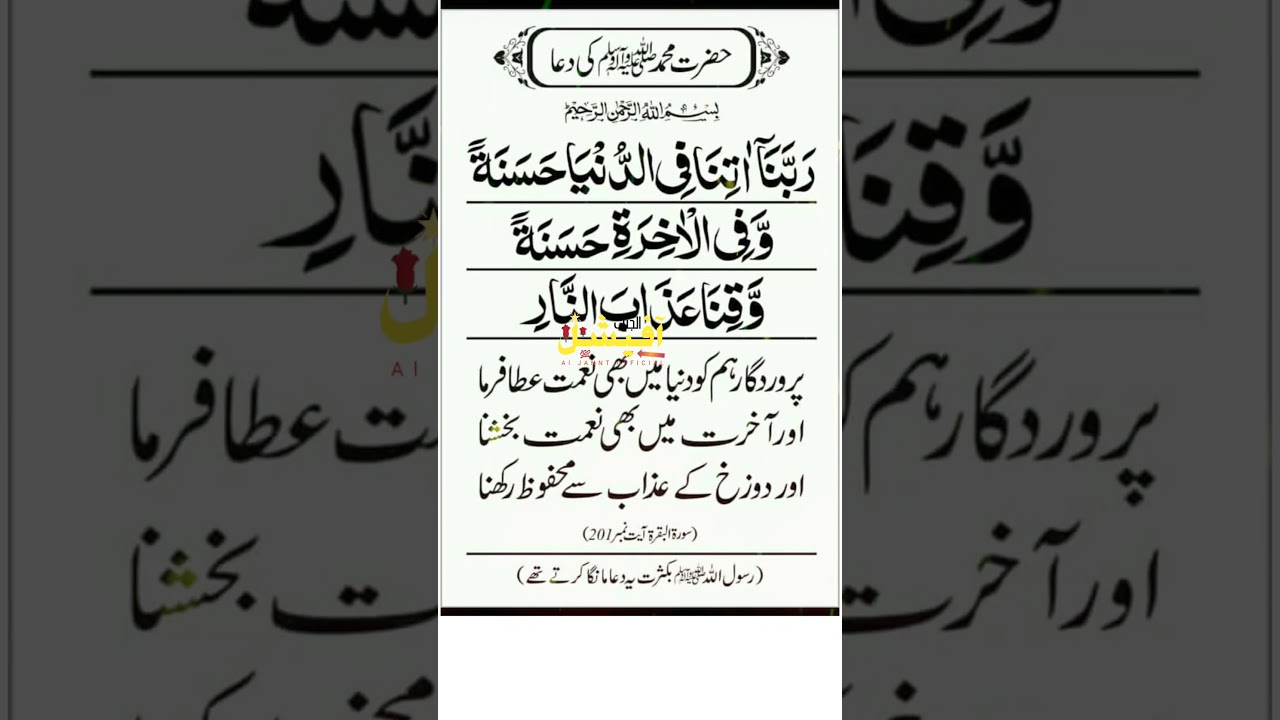 حضرت محمد صلی اللہ علیہ وآلہ وسلم کی دعا
بِسْمِ اللهِ الرَّحْمٰنِ الرَّحِيْمِ
رَبَّنَآ اٰتِنَا فِى الدُّنْيَا حَسَنَةً
وَّفِى الْاٰخِرَةِ حَسَنَةً
وَّقِنَا عَذَابَ النَّارِ
الجنت
آفیشل
Al JANNT OFFICIAL
پروردگار ہم کو دنیا میں بھی نعمت عطا فرما
اور آخرت میں بھی نعمت بخشنا
اور دوزخ کے عذاب سے محفوظ رکھنا
(سورۃ البقرۃ آیت نمبر 201)
(رسول اللہ ﷺ بکثرت یہ دعا مانگا کرتے تھے)